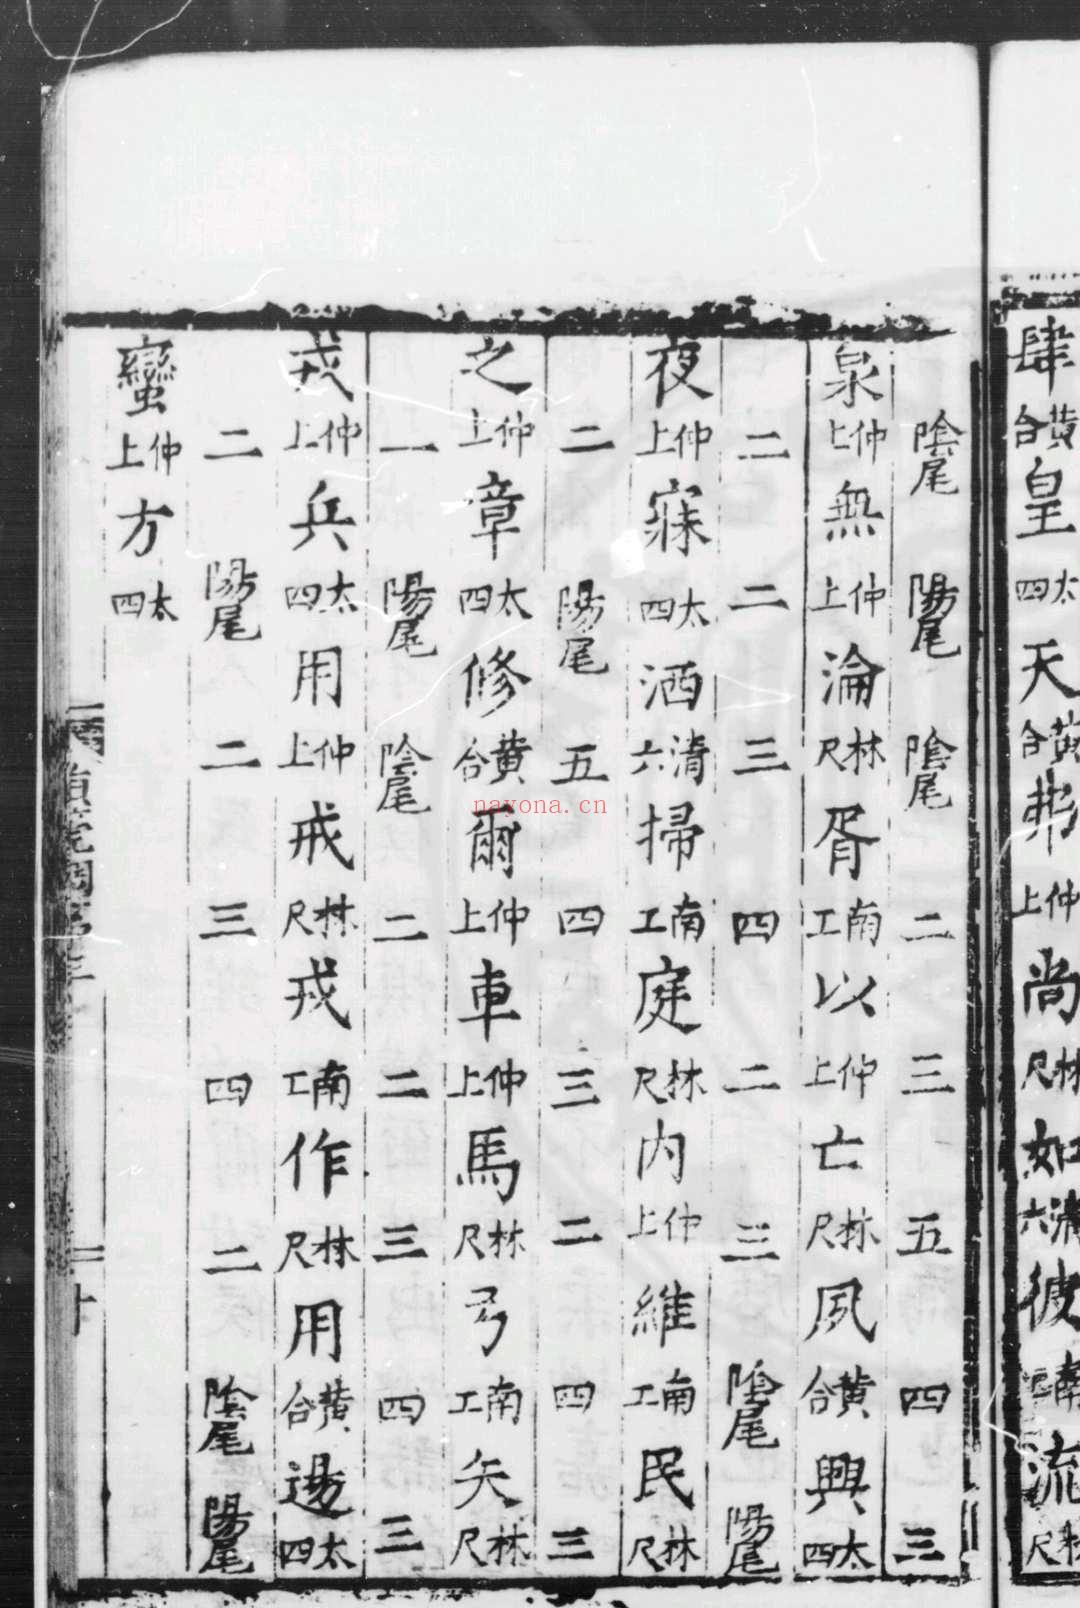 肆黃合皇太四天黃合弗仲上尚林尺如清六彼南工流林尺
陰尾 陽尾 陰尾 二 三 五 四 三
泉仲上無仲上淪林尺胥南工以仲上亡林尺夙黃合興太四
二 二 三 四 二 三 陰尾 陽尾
夜仲上寐太四洒清六掃南工庭林尺内仲上維南工民林尺
二 陽尾 五 四 三 二 四 三
之仲上章太四修黃合爾仲上車仲上馬林尺弓南工矢林尺
一 陽尾 陰尾 二 二 三 四 三
戎仲上兵太四用仲上戒林尺戎南工作林尺用黃合逷太四
二 陽尾 二 三 四 二 陰尾 陽尾
蠻仲上方太四
nayona.cn